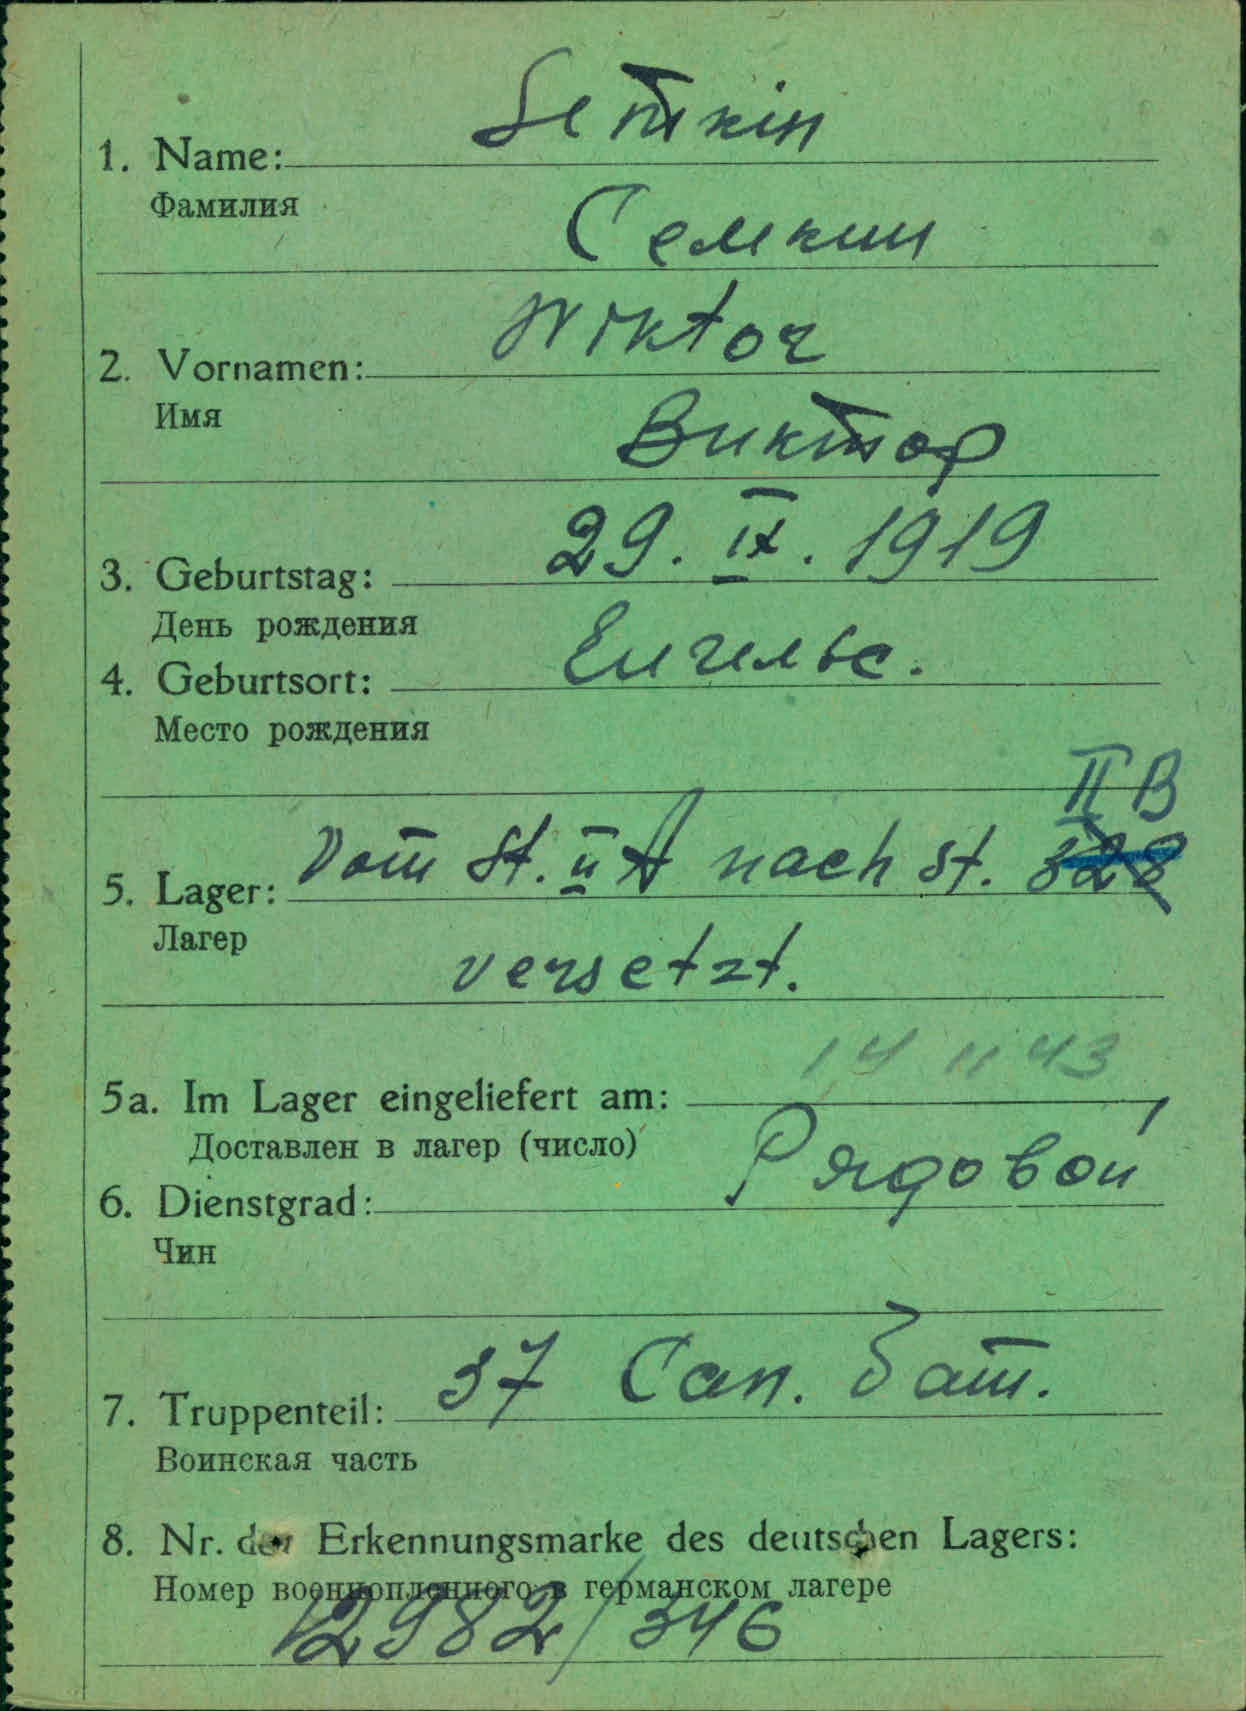 1. Name: Semkin
Фамилия
Семкин
2. Vornamen: Wiktor
Имя
Виктор
3. Geburtstag: 29. IX. 1919
День рождения
4. Geburtsort: Енгельс.
Место рождения
II B
5. Lager: Vom St. II A nach St. 328
Лагер
versetzt.
14 11 43
5a. Im Lager eingeliefert am:
Доставлен в лагер (число)
6. Dienstgrad: Рядовой
Чин
7. Truppenteil: 37 Сап. бат.
Воинская часть
8. Nr. der Erkennungsmarke des deutschen Lagers:
Номер военнопленного в германском лагере
12982/346